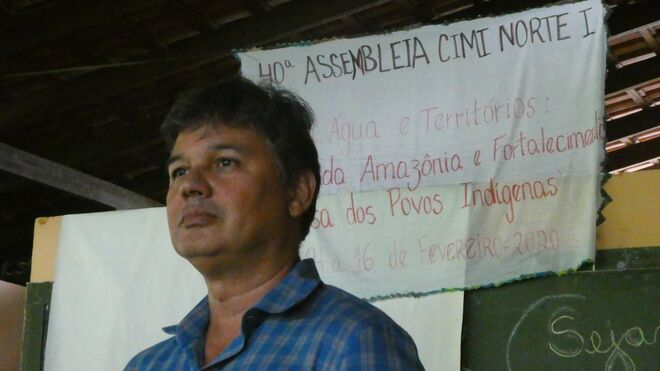 40ª ASSEMBLEIA CIMI NORTE I
Água e Territórios:
da Amazônia e Fortalecimento
sa dos Povos Indígenas"
a 16 de Fevereiro-2020
Seja